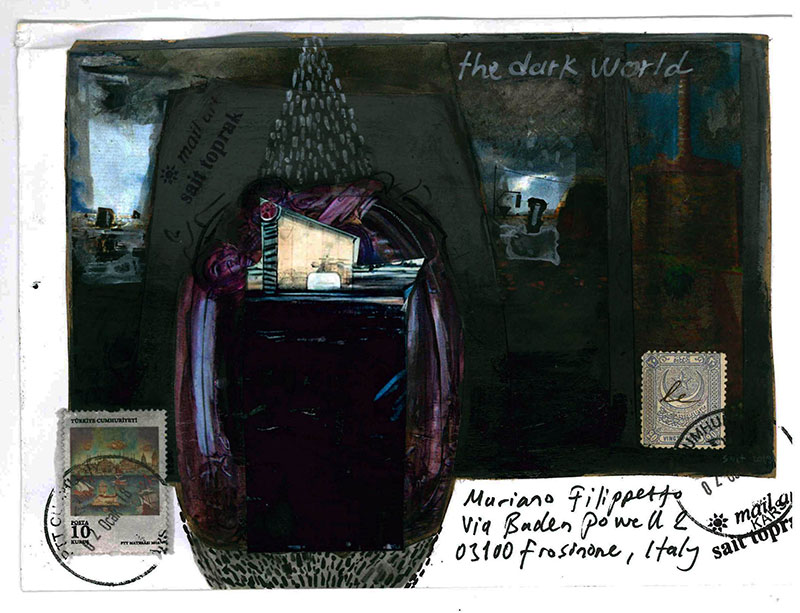 the dark world
mail art
sait toprak
TÜRKİYE CUMHURİYETİ
POSTA
10
KURUŞ
02 Ocak
Muriano Filippetto
Via Baden Powell 2
03100 Frosinone, Italy
mail ar
sait topra